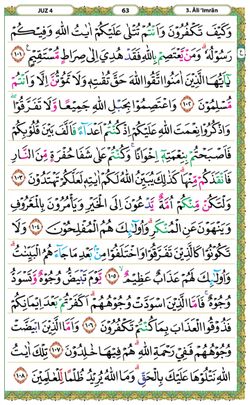 JUZ 4 63 3. Āli ʻImrān
وَكَيْفَ تَكْفُرُوْنَ وَاَنْتُمْ تُتْلٰى عَلَيْكُمْ اٰيٰتُ اللّٰهِ وَفِيْكُمْ
رَسُوْلُهٗ ۗ وَمَنْ يَّعْتَصِمْ بِاللّٰهِ فَقَدْ هُدِيَ اِلٰى صِرَاطٍ مُّسْتَقِيْمٍ ۝١٠١
يٰٓاَيُّهَا الَّذِيْنَ اٰمَنُوا اتَّقُوا اللّٰهَ حَقَّ تُقٰىتِهٖ وَلَا تَمُوْتُنَّ اِلَّا وَاَنْتُمْ
مُّسْلِمُوْنَ ۝١٠٢ وَاعْتَصِمُوْا بِحَبْلِ اللّٰهِ جَمِيْعًا وَّلَا تَفَرَّقُوْا
وَاذْكُرُوْا نِعْمَتَ اللّٰهِ عَلَيْكُمْ اِذْ كُنْتُمْ اَعْدَاۤءً فَاَلَّفَ بَيْنَ قُلُوْبِكُمْ
فَاَصْبَحْتُمْ بِنِعْمَتِهٖٓ اِخْوَانًا ۚ وَكُنْتُمْ عَلٰى شَفَا حُفْرَةٍ مِّنَ النَّارِ
فَاَنْقَذَكُمْ مِّنْهَا ۗ كَذٰلِكَ يُبَيِّنُ اللّٰهُ لَكُمْ اٰيٰتِهٖ لَعَلَّكُمْ تَهْتَدُوْنَ ۝١٠٣
وَلْتَكُنْ مِّنْكُمْ اُمَّةٌ يَّدْعُوْنَ اِلَى الْخَيْرِ وَيَأْمُرُوْنَ بِالْمَعْرُوْفِ
وَيَنْهَوْنَ عَنِ الْمُنْكَرِ ۗ وَاُولٰۤىِٕكَ هُمُ الْمُفْلِحُوْنَ ۝١٠٤ وَلَا
تَكُوْنُوْا كَالَّذِيْنَ تَفَرَّقُوْا وَاخْتَلَفُوْا مِنْۢ بَعْدِ مَا جَاۤءَهُمُ الْبَيِّنٰتُ ۗ
وَاُولٰۤىِٕكَ لَهُمْ عَذَابٌ عَظِيْمٌ ۝١٠٥ يَّوْمَ تَبْيَضُّ وُجُوْهٌ وَّتَسْوَدُّ
وُجُوْهٌ ۚ فَاَمَّا الَّذِيْنَ اسْوَدَّتْ وُجُوْهُهُمْ ۗ اَكَفَرْتُمْ بَعْدَ اِيْمَانِكُمْ
فَذُوْقُوا الْعَذَابَ بِمَا كُنْتُمْ تَكْفُرُوْنَ ۝١٠٦ وَاَمَّا الَّذِيْنَ ابْيَضَّتْ
وُجُوْهُهُمْ فَفِيْ رَحْمَةِ اللّٰهِ ۗ هُمْ فِيْهَا خٰلِدُوْنَ ۝١٠٧ تِلْكَ اٰيٰتُ
اللّٰهِ نَتْلُوْهَا عَلَيْكَ بِالْحَقِّ ۗ وَمَا اللّٰهُ يُرِيْدُ ظُلْمًا لِّلْعٰلَمِيْنَ ۝١٠٨